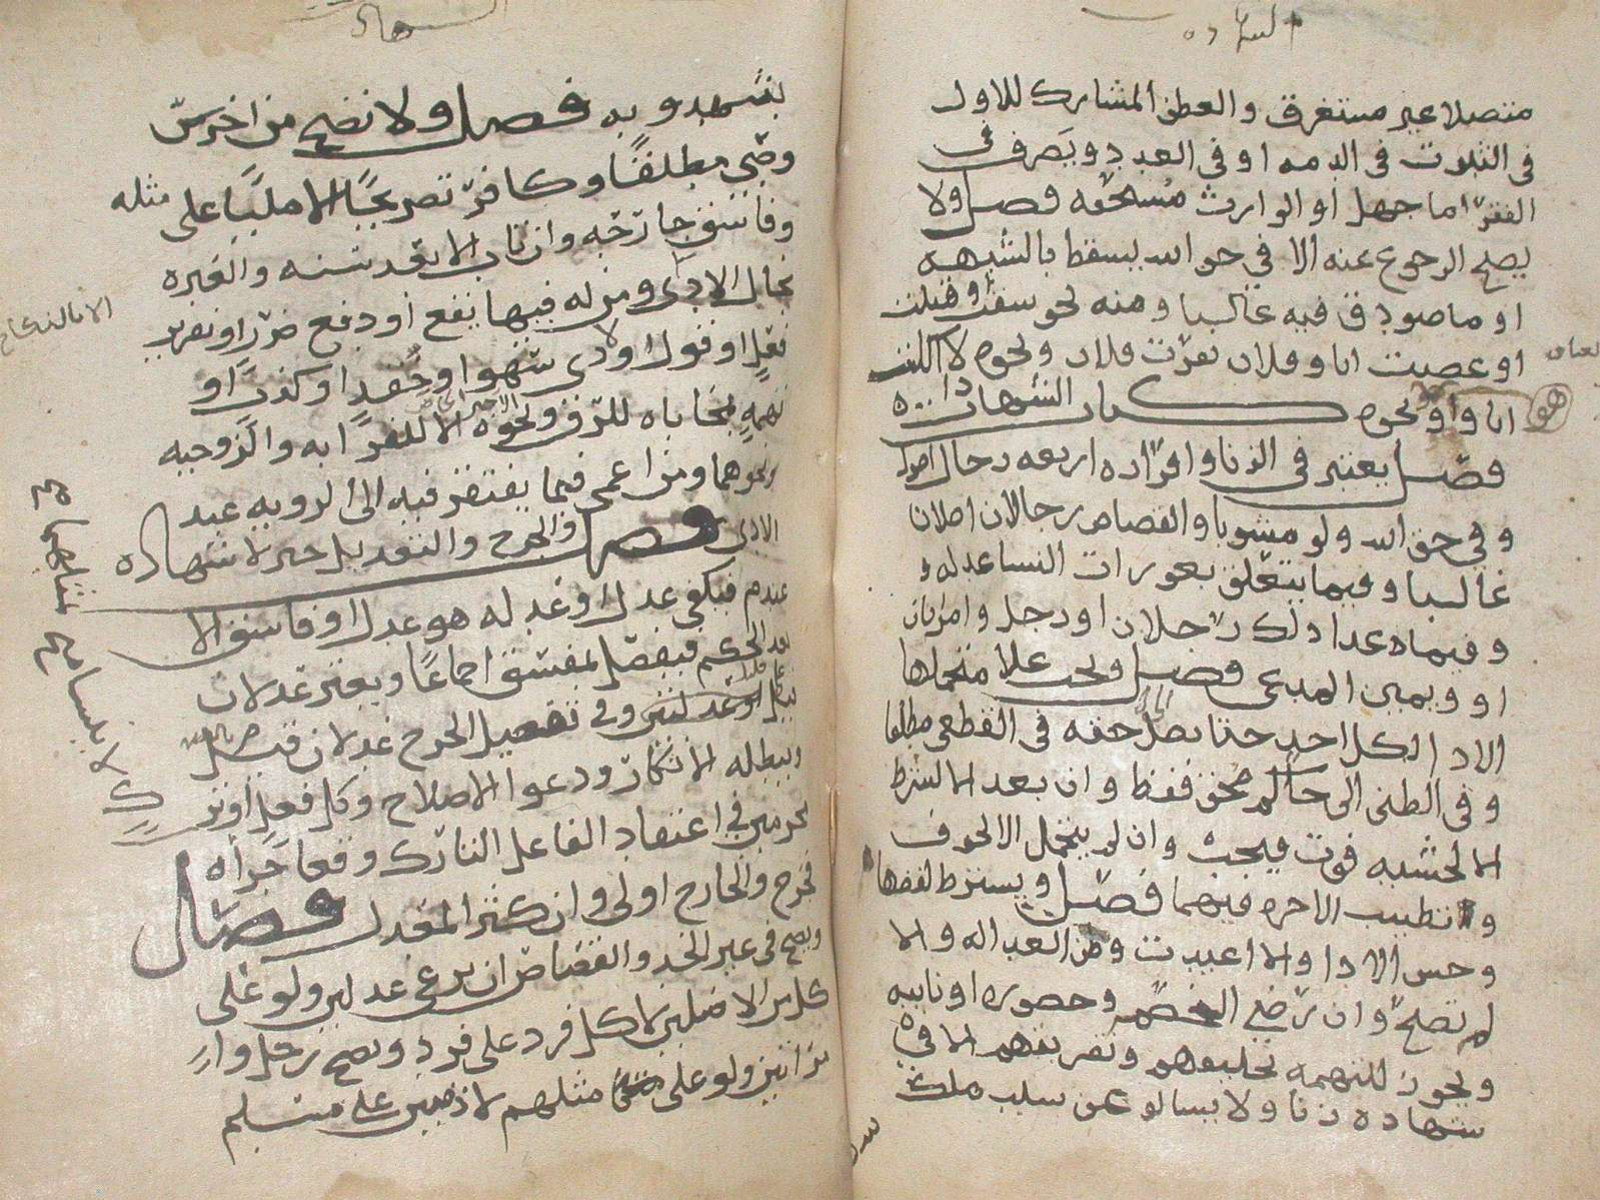 متصلا غير مستغرق والعطف المشارك للاول
في الثبوت في الذمه او في العدد ويصرف في
الفقرا ما جهل او الوارث مستحقه فصل ولا
يصح الرجوع عنه الا في حق الله يسقط بالشبهه
او ما صودق فيه غالبا ومنه نحو سقت وقتلت
او غصبت انا وفلان بقرت فلان ونحوه لا اكلت
انا و او نحوه كتاب الشهادات
فصل يعتبر في الزنا واقراره اربعه رجال اصول
وفي حق الله ولو مشوبا والقصاص رجلان اصلان
غالبا وفيما يتعلق بعورات النسا عدله
وفيما عدا ذلك رجلان او رجل وامراتان
او ويمين المدعي فصل ويجب على متحملها
الادا لكل احد حتا يصل حقه في القطعي مطلقا
وفي الظني الى حاكم محق فقط وان بعد الا لشرط
الا لخشيه فوت فيجب وان لم يتحمل الا لخوف
وتطيب الاجره فيهما فصل ويشترط لفظها
وحسن الادا والا اعيدت وظن العداله والا
لم تصح وان رضي الخصم وحضوره او نايبه
ويجوز للتهمه تحليفهم وتفريقهم الا في
شهاده زنا ولا يسالو عن سلب ملك
يشهدو به فصل ولا تصح من اخرس
وصبي مطلقا وكافر تصريحا الا مليا على مثله
وفاسق جارحه وان تاب الا بعد سنه والعبره
بحال الادى ومن له فيها نفع او دفع ضرر او تقرير
فعل او قول او لا ذي سهو او حقد او كذب او
تهمه بمحاباه للرق ونحوه الا للقرابه والزوجيه
ونحوهما ومن اعمى فيما يفتقر فيه الى الرويه عند
الادى فصل والجرح والتعديل خبر لا شهاده
عندهم فيكفي عدل او عدله هو عدل او فاسق الا
بعد الحكم فيفصل بمفسق اجماعا ويعتبر عدلان
وفي تفصيل الجرح عدلان قيل
ويبطله الانكار ودعوا الاصلاح وكل فعل او ترك
محرمين في اعتقاد الفاعل التارك وقعا جراه
فجرح والجارح اولى وان كثر المعدل فصل
ويصح في غير الحد والقصاص ان يرعي عدلين ولو على
كل من الاصلين لا كل فرد على فرد ويصح رجل وامر
تين ولو على مثلهم لا ذميين على مسلم